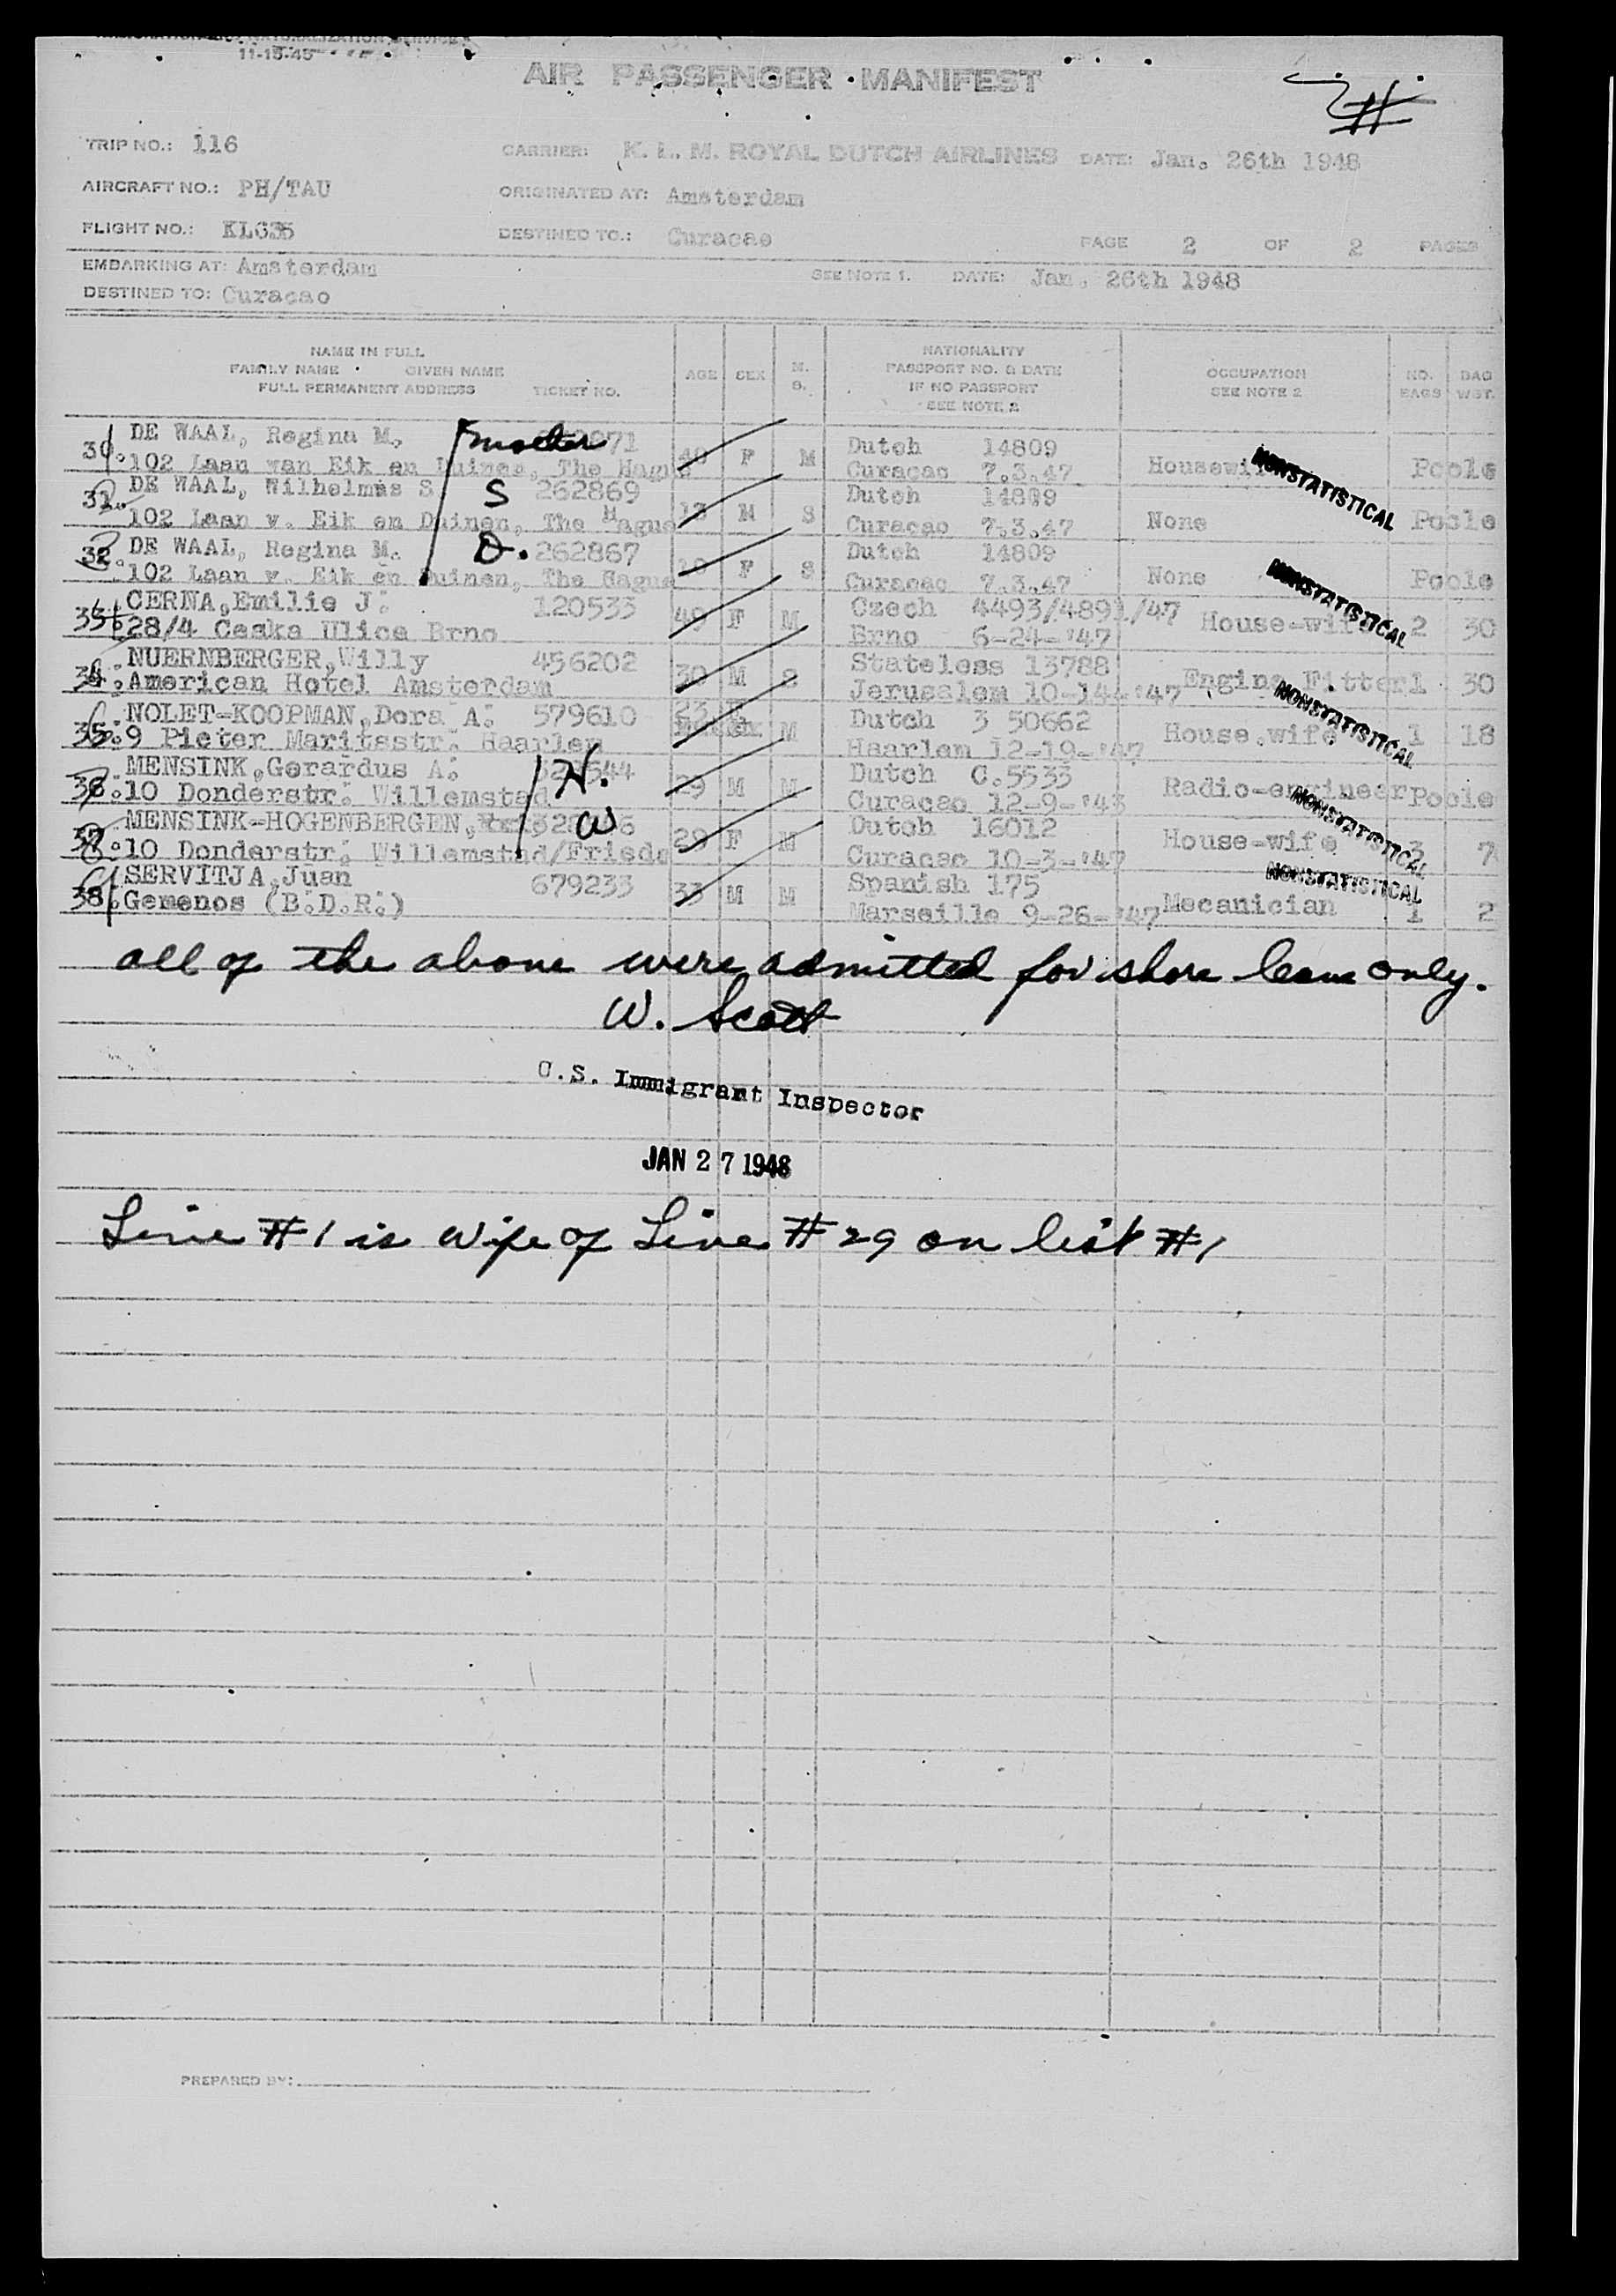 IMMIGRATION AND NATURALIZATION SERVICE
11-15-45
AIR PASSENGER MANIFEST
TRIP NO.: 116 CARRIER: K. L. M. ROYAL DUTCH AIRLINES DATE: Jan. 26th 1948
AIRCRAFT NO.: PH/TAU ORIGINATED AT: Amsterdam
FLIGHT NO.: KL635 DESTINED TO.: Curacao PAGE 2 OF 2 PAGES
EMBARKING AT: Amsterdam SEE NOTE 1. DATE: Jan. 26th 1948
DESTINED TO: Curacao
NAME IN FULL NATIONALITY
FAMILY NAME GIVEN NAME AGE SEX M. PASSPORT NO. & DATE OCCUPATION NO. BAG
FULL PERMANENT ADDRESS TICKET NO. S. IF NO PASSPORT SEE NOTE 2 BAGS WGT.
SEE NOTE 2
30. DE WAAL, Regina M. mother 40 F M Dutch 14809
102 Laan van Eik en Duinen, The Hague Curacao 7.3.47 Housewife NONSTATISTICAL Poole
31. DE WAAL, Wilhelmus S S 262869 13 M S Dutch 14809
102 Laan v. Eik en Duinen, The Hague Curacao 7.3.47 None Poole
32. DE WAAL, Regina M. D. 262867 F S Dutch 14809
102 Laan v. Eik en Duinen, The Hague Curacao 7.3.47 None NONSTATISTICAL Poole
33. CERNA, Emilie J. 120533 49 F M Czech 4493/4891/47 House-wife 2 30
28/4 Ceska Ulice Brno Brno 6-24-'47
34. NUERNBERGER, Willy 456202 30 M S Stateless 13788 Engine Fitter 1 30
American Hotel Amsterdam Jerusalem 10-14-'47 NONSTATISTICAL
35. NOLET-KOOPMAN, Dora A. 579610 23 F M Dutch 3 50662 House.wife 1 18
9 Pieter Maritsstr. Haarlem Haarlem 12-19-'47
36. MENSINK, Gerardus A. H. 29 M M Dutch C.5533 Radio-engineer Poole
10 Donderstr. Willemstad Curacao 12-9-'43 NONSTATISTICAL
37. MENSINK-HOGENBERGEN, W 29 F M Dutch 16012 House-wife 3 7
10 Donderstr. Willemstad/Frieda Curacao 10-3-'47
38. SERVITJA, Juan 679233 33 M M Spanish 175 NONSTATISTICAL
Gemenos (B.D.R.) Marseille 9-26-'47 Mecanician 1 2
all of the above were admitted for shore leave only.
W. Scott
U.S. Immigrant Inspector
JAN 27 1948
Line #1 is wife of Line #29 on list #1
PREPARED BY: